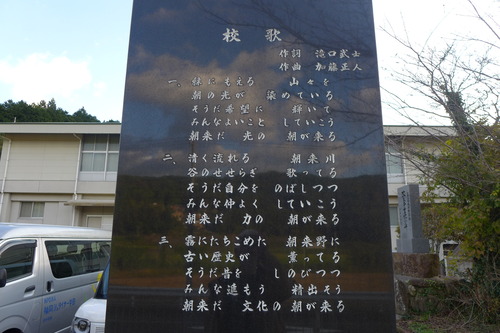 校歌
作詞 滝口武士
作曲 加藤正人
一、緑にもえる 山々を
朝の光が 染めている
そうだ希望に 輝いて
みんなよいこと していこう
朝来だ 光の 朝が来る
二、清く流れる 朝来川
谷のせせらぎ 歌ってる
そうだ自分を のばしつつ
みんな仲よく していこう
朝来だ 力の 朝が来る
三、霧にたちこめた 朝来野に
古い歴史が 薫ってる
そうだ昔を しのびつつ
みんな進もう 精出そう
朝来だ 文化の 朝が来る